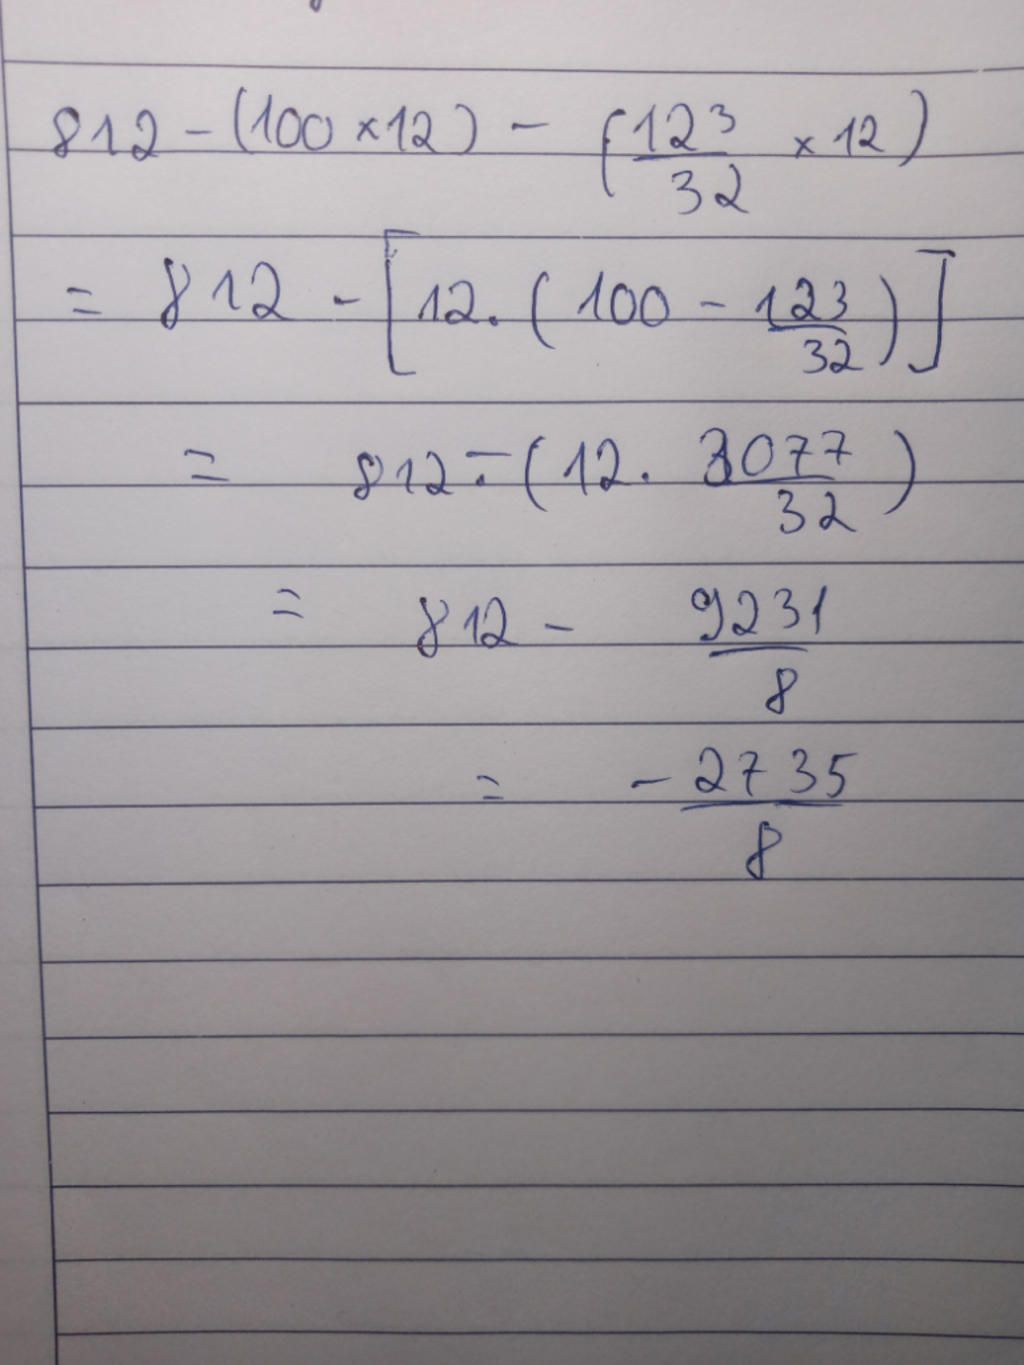 812 - (100 × 12) - (123/32 × 12)
= 812 - [12. (100 - 123/32)]
= 812 - (12. 3077/32)
= 812 - 9231/8
= - 2735/8